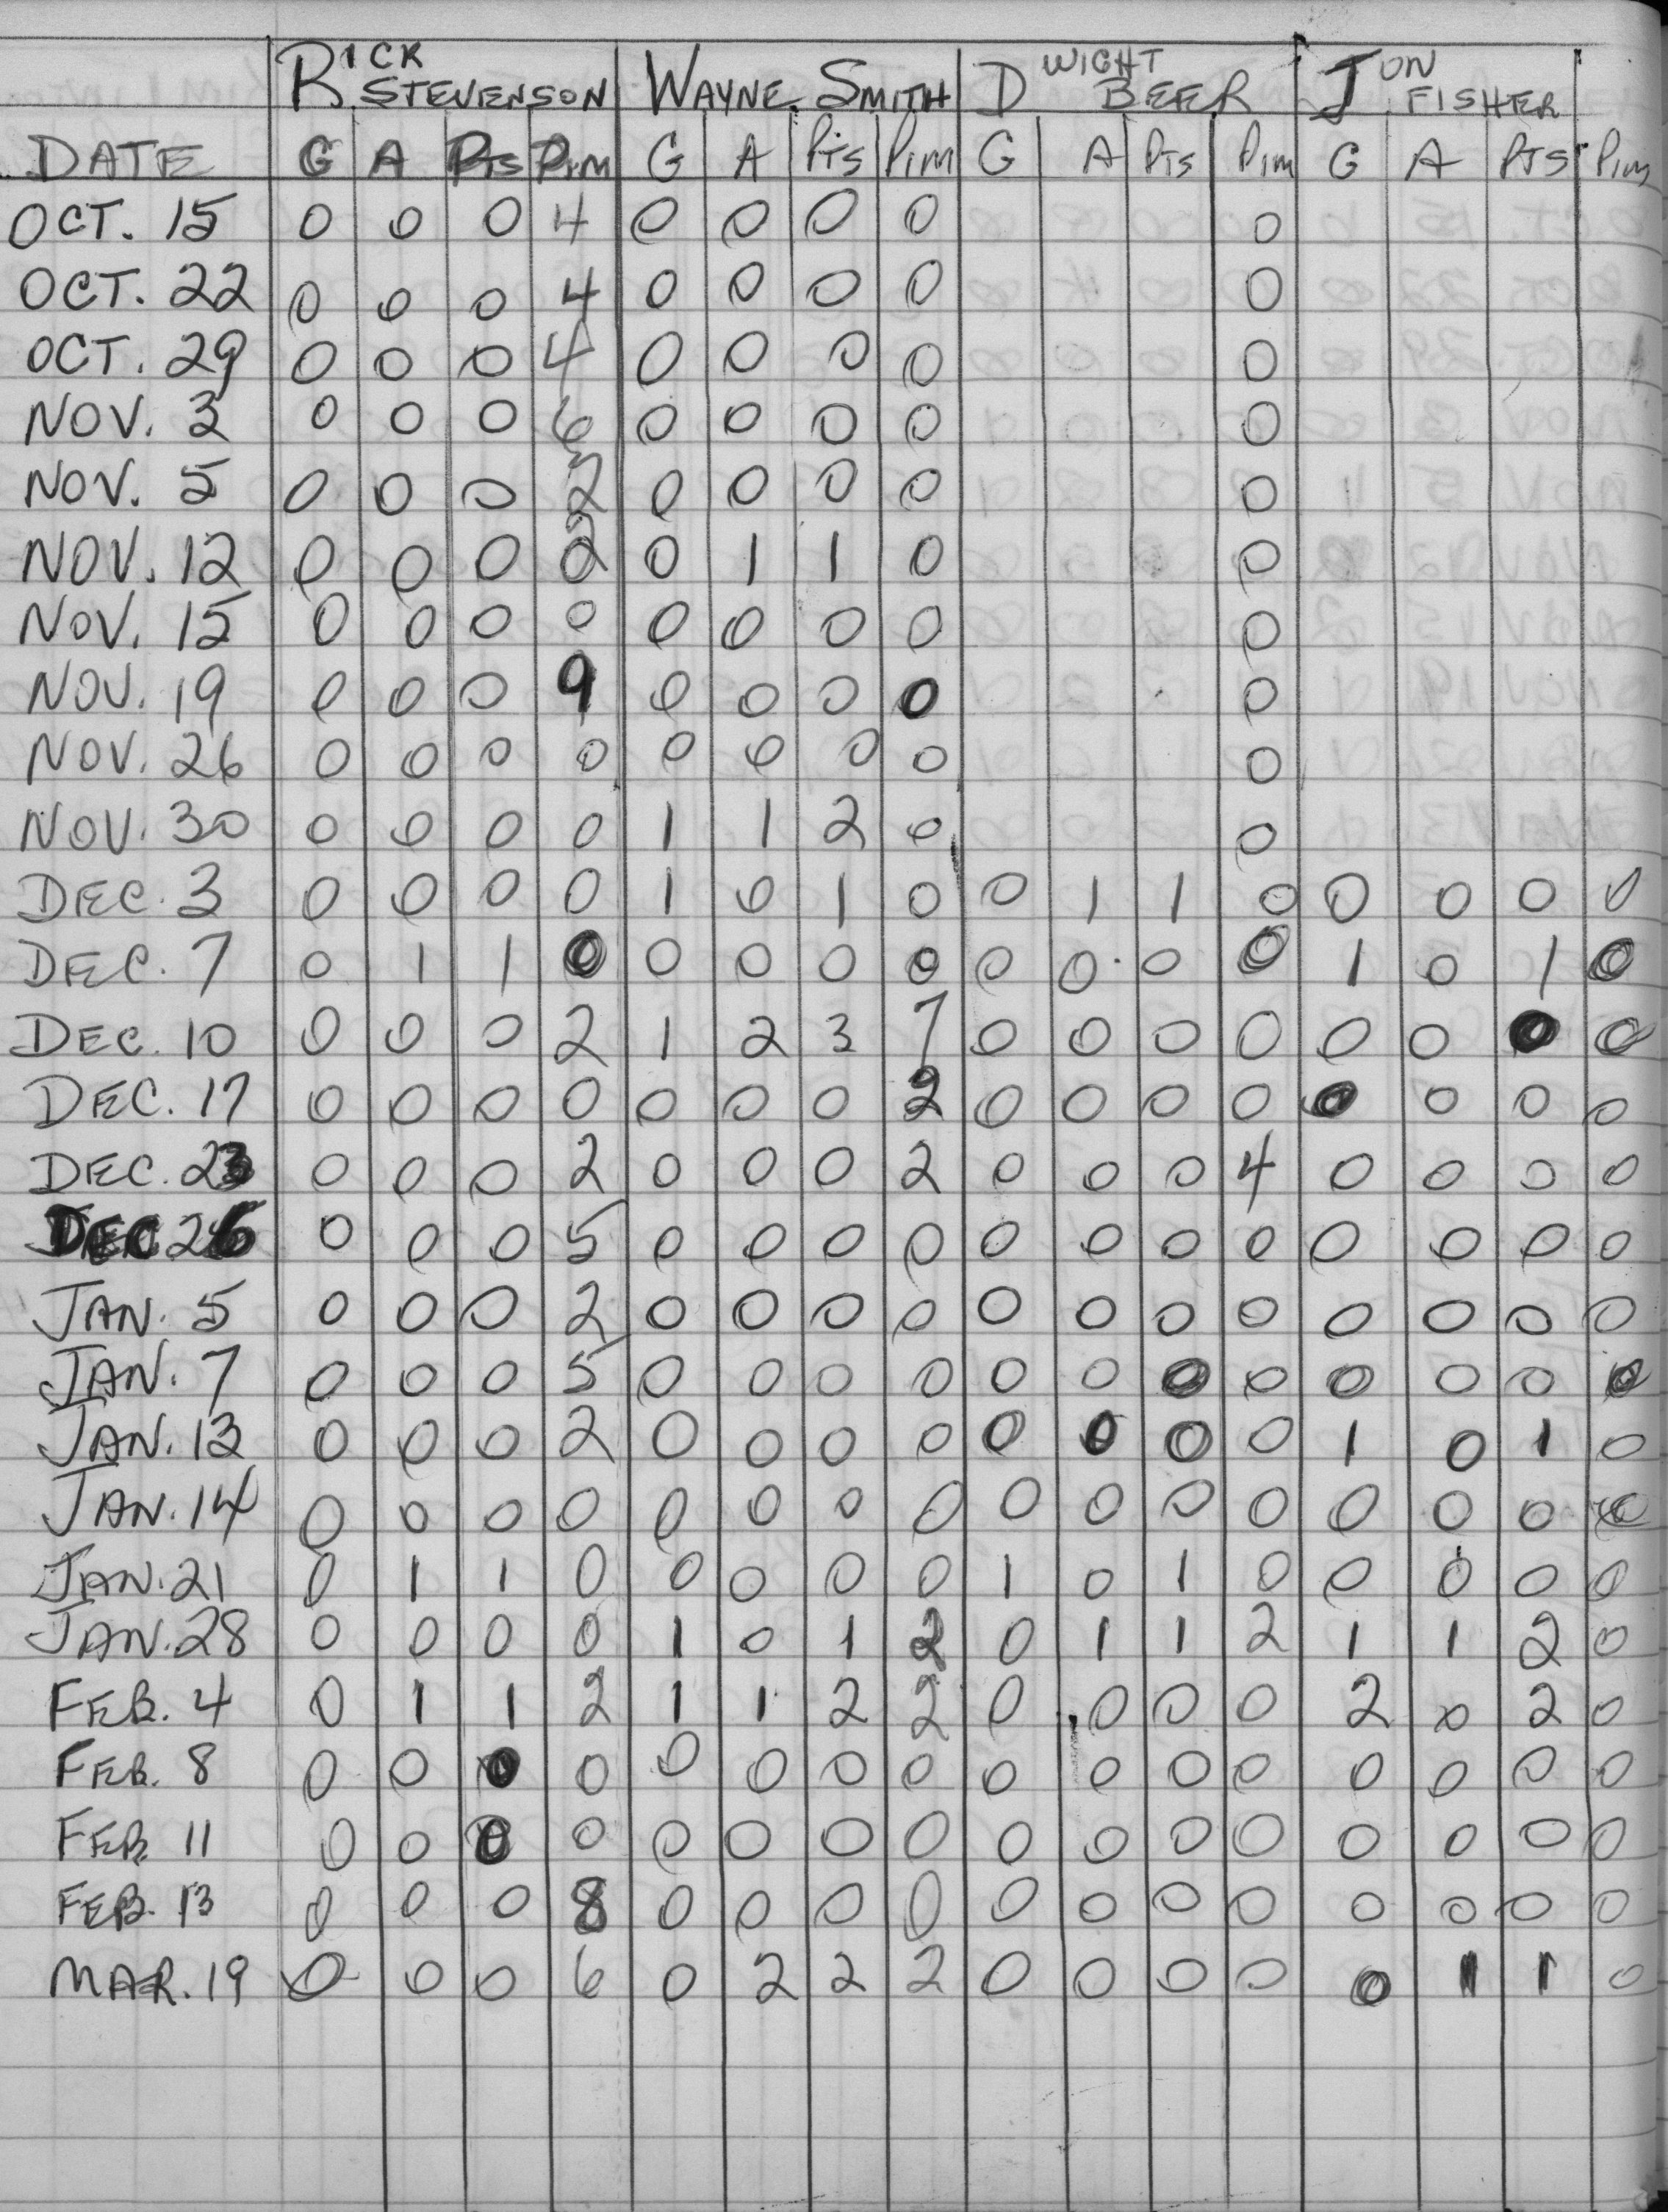 RICK STEVENSON WAYNE SMITH DWIGHT BEER JON FISHER
DATE G A Pts Pim G A Pts Pim G A Pts Pim G A PTS Pim
OCT. 15 0 0 0 4 0 0 0 0 0
OCT. 22 0 0 0 4 0 0 0 0 0
OCT. 29 0 0 0 4 0 0 0 0 0
NOV. 3 0 0 0 6 0 0 0 0 0
NOV. 5 0 0 0 2 0 0 0 0 0
NOV. 12 0 0 0 2 0 1 1 0 0
NOV. 15 0 0 0 0 0 0 0 0 0
NOV. 19 0 0 0 9 0 0 0 0 0
NOV. 26 0 0 0 0 0 0 0 0 0
NOV. 30 0 0 0 0 1 1 2 0 0
DEC. 3 0 0 0 0 1 0 1 0 0 1 1 0 0 0 0 0
DEC. 7 0 1 1 0 0 0 0 0 0 0 0 0 1 0 1 0
DEC. 10 0 0 0 2 1 2 3 7 0 0 0 0 0 0 0 0
DEC. 17 0 0 0 0 0 0 0 2 0 0 0 0 0 0 0 0
DEC. 23 0 0 0 2 0 0 0 2 0 0 0 4 0 0 0 0
DEC 26 0 0 0 5 0 0 0 0 0 0 0 0 0 0 0 0
JAN. 5 0 0 0 2 0 0 0 0 0 0 0 0 0 0 0 0
JAN. 7 0 0 0 5 0 0 0 0 0 0 0 0 0 0 0 0
JAN. 13 0 0 0 2 0 0 0 0 0 0 0 0 1 0 1 0
JAN. 14 0 0 0 0 0 0 0 0 0 0 0 0 0 0 0 0
JAN. 21 0 1 1 0 0 0 0 0 1 0 1 0 0 0 0 0
JAN. 28 0 0 0 0 1 0 1 2 0 1 1 2 1 1 2 0
FEB. 4 0 1 1 2 1 1 2 2 0 0 0 0 2 0 2 0
FEB. 8 0 0 0 0 0 0 0 0 0 0 0 0 0 0 0 0
FEB. 11 0 0 0 0 0 0 0 0 0 0 0 0 0 0 0 0
FEB. 13 0 0 0 8 0 0 0 0 0 0 0 0 0 0 0 0
MAR. 19 0 0 0 6 0 2 2 2 0 0 0 0 0 1 1 0